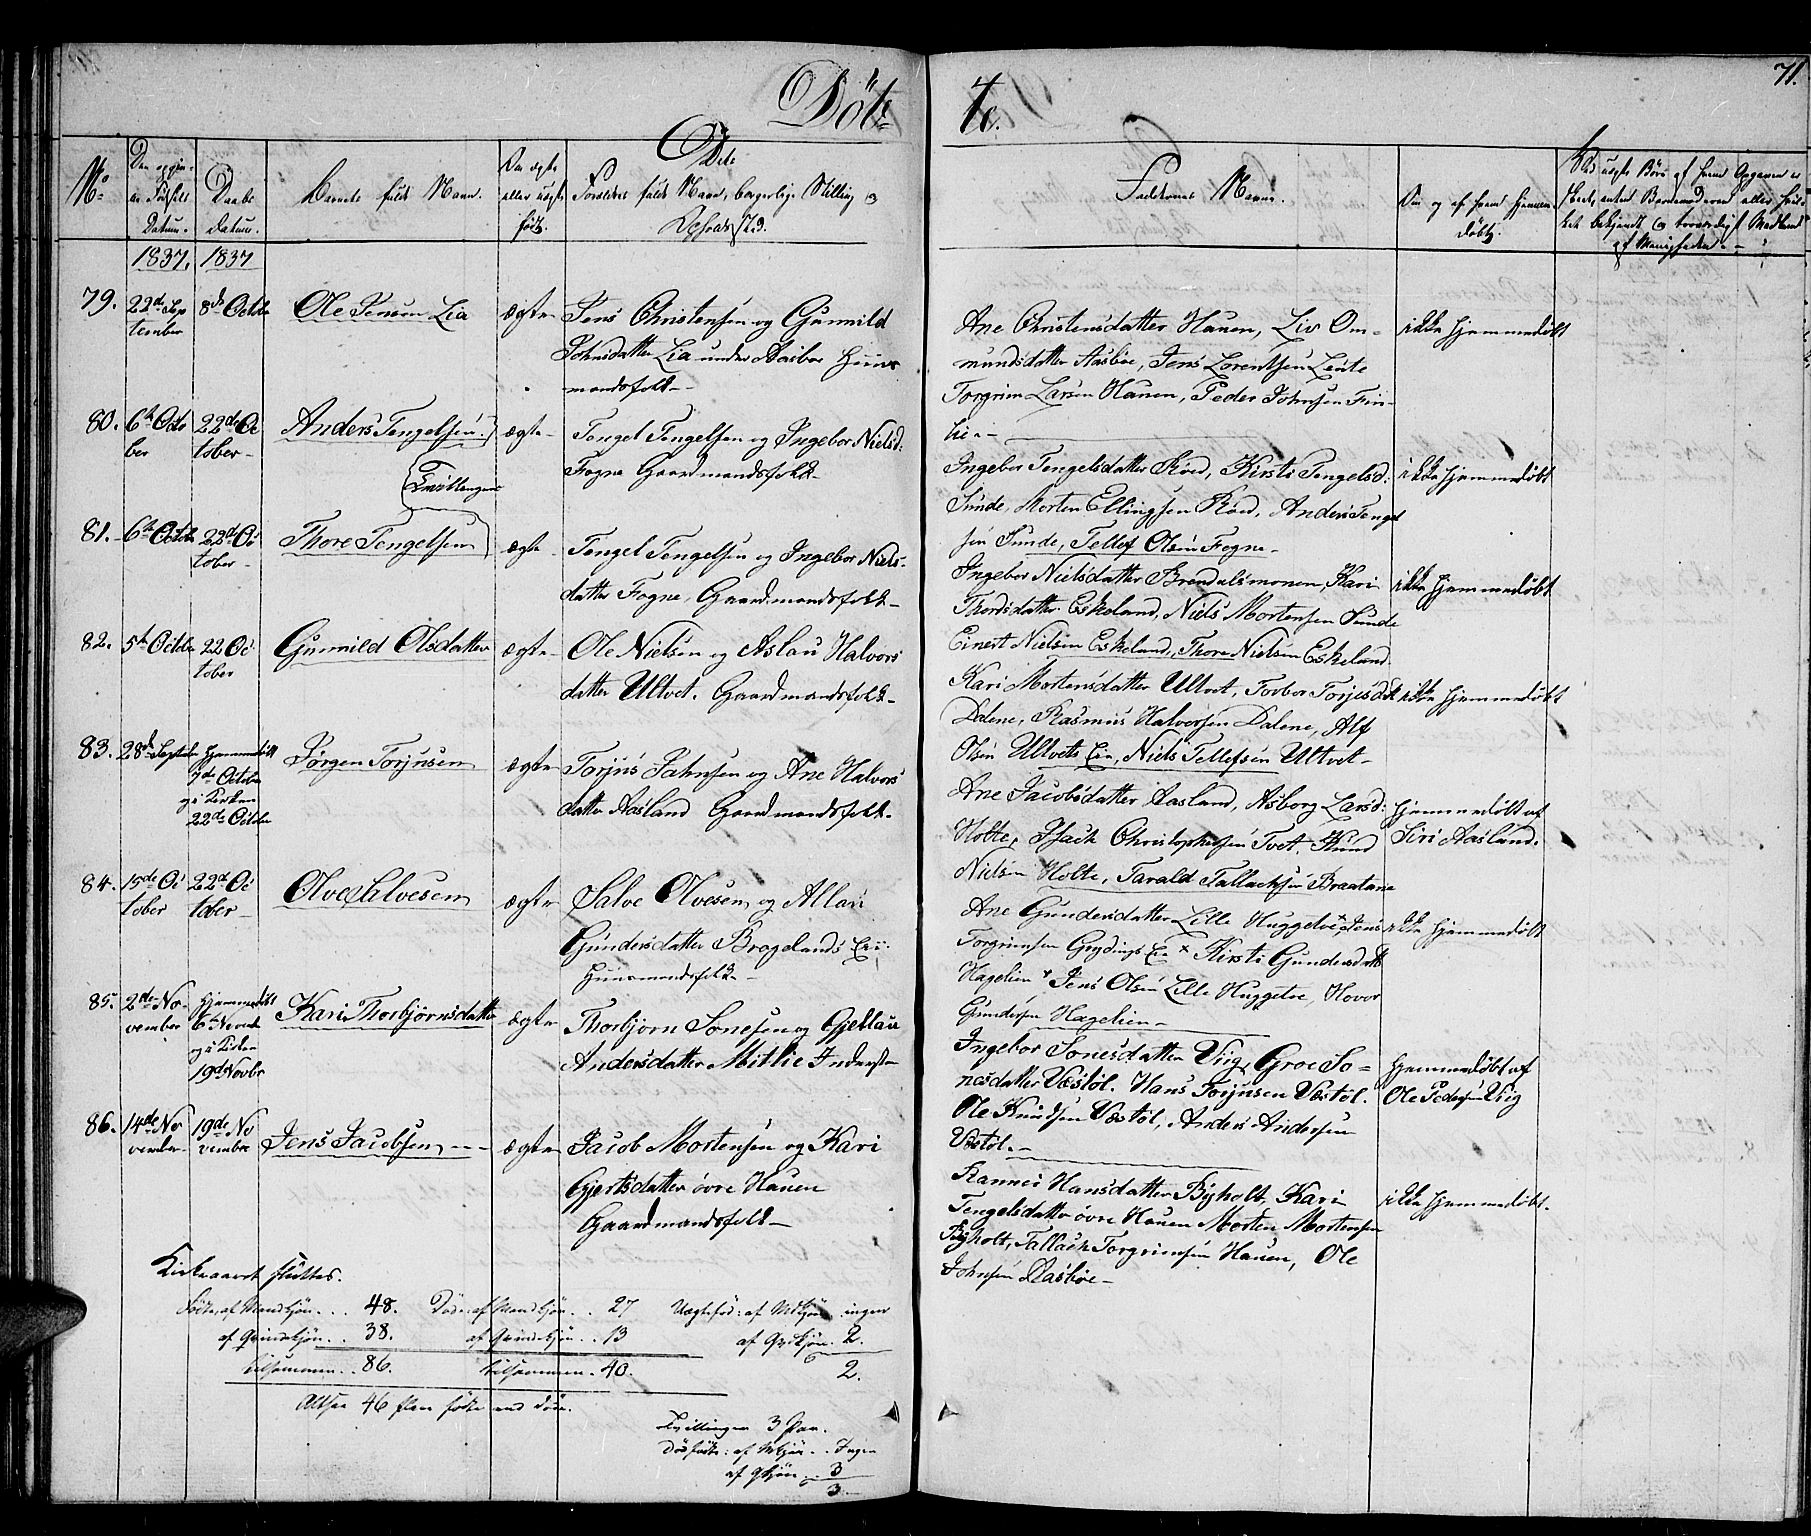 Döb=
te.
71.
No
Den opgiv=
en Födsels
Datum.
Daabs
datum.
Barnets fulde Navn.
Om ægte
eller uægte
födt.
De Döbte
Forældres fulde Navn, borgerlige Stilling og
Opholdssted.
Faddernes Navne.
Om og af hvem hjemme
döbt.
1837. 1837
79. 22de Sep
tember
8de Octbr
Ole Jensen Lia
ægte
Jens Christensen og Gunnild
Johnsdatter Lia under Aasbøe Huus
mandsfolk
Ane Christensdatter Hauen, Liv Om=
mundsdatter Aasbøe, Jens Lorentsen Leite
Torgrim Larsen Hauen, Peder Johnsen Fin=
lie
ikke hjemmedöbt
80. 6te Octo
ber
22de Oc
tober
Anders Tengelsen
Tvillinger
ægte
Tengel Tengelsen og Ingebor Nielsd:
Fogne Gaardmandsfolk
Ingebor Tengelsdatter Röed, Kirsti Tengelsd:
Sunde, Morten Ellingsen Röed, Anders Tengel
sen Sunde, Tellef Olsen Fogne
ikke hjemmedöbt
81. 6te Octbr
22de Oc
tober
Thore Tengelsen
ægte
Tengel Tengelsen og Ingebor Niels=
datter Fogne, Gaardmandsfolk
Ingebor Nielsdatter Brendalsmonen, Kari
Thordsdatter Eskeland, Niels Mortensen Sunde
Einert Nielsen Eskeland, Thore Nielsen Eskeland
ikke hjemmedöbt
82. 5te Octbr
22 Oc
tober
Gunnild Olsdatter
ægte
Ole Nielsen og Aslau Halvors
datter Ultvet. Gaardmandsfolk
Kari Mortensdatter Ultvet, Torbor Torjusdat
Dalene, Rasmus Halvorsen Dalene, Alf
Olsen Ultvets Eie, Niels Tellefsen Ultvet
ikke hjemmedöbt
83. 28de Septbr
Hjemmedöbt
7de October
og i Kirken
22de Octbr
Jörgen Torjusen
ægte
Torjus Jahnsen og Ane Halvors
datter Aasland Gaardmandsfolk
Ane Jacobsdatter Aasland, Asborg Larsd:
Holte, Isack Christophersen Tvet, Knud
Nielsen Holte, Tarald Tallacksen Braatane
Hjemmedöbt af
Siri Aasland.
84. 15de Oc
tober
22de Oc
tober
Olve Salvesen
ægte
Salve Olvesen og Allau
Gundersdatter Brogelands Eie
Huusmandsfolk
Ane Gundersdatter Lille Huggetve, Jens
Torgrimsen Grydings Eie x Kirsti Gundersdatt
Hagelien x Jens Olsen Lille Huggetve, Hovor
Gundersen Hagelien
ikke hjemmedöbt
85. 2de No=
vember
Hjemmedöbt
6te Novemb
og i Kirken
19de Novbr
Kari Thorbjørnsdatter
ægte
Thorbjørn Sonesen og Gjellau
Andersdatter Mitlie Inderste
Ingebor Sonesdatter Viig, Groe So=
nesdatter Væstøl. Hans Torjusen Væstøl.
Ole Knudsen Væstøl, Anders Andersen
Væstøl.
hjemmedöbt af
Ole Pedersen Viig
86. 14de No
vember
19de No
vember
Jens Jacobsen
ægte
Jacob Mortensen og Kari
Gjertsdatter øvre Hauen
Gaardmandsfolk
Rannei Hansdatter Bjyholt, Kari
Tengelsdatter øvre Hauen Morten Mortensen
Bjyholt, Tallack Torgrimsen Hauen, Ole
Johnsen Aasbøe
ikke hjemmedöbt.
Kirkeaaret sluttes.
Födte af Mandkjön . . . 48. Döde: af Mandkjön . . 27 Uægteföd: af Mdkjön ingen
af Qvindekjön . . 38. af Qvindekjön . . 13 af Qvdkjön . 2.
tilsammen . . 86. tilsammen . 40. 2.
Altsaa 46 flere födte end döde.
Tvillinger 3 Par.
Dödfödte: af Mkjön . . Ingen
af Qkjön . . 3
3